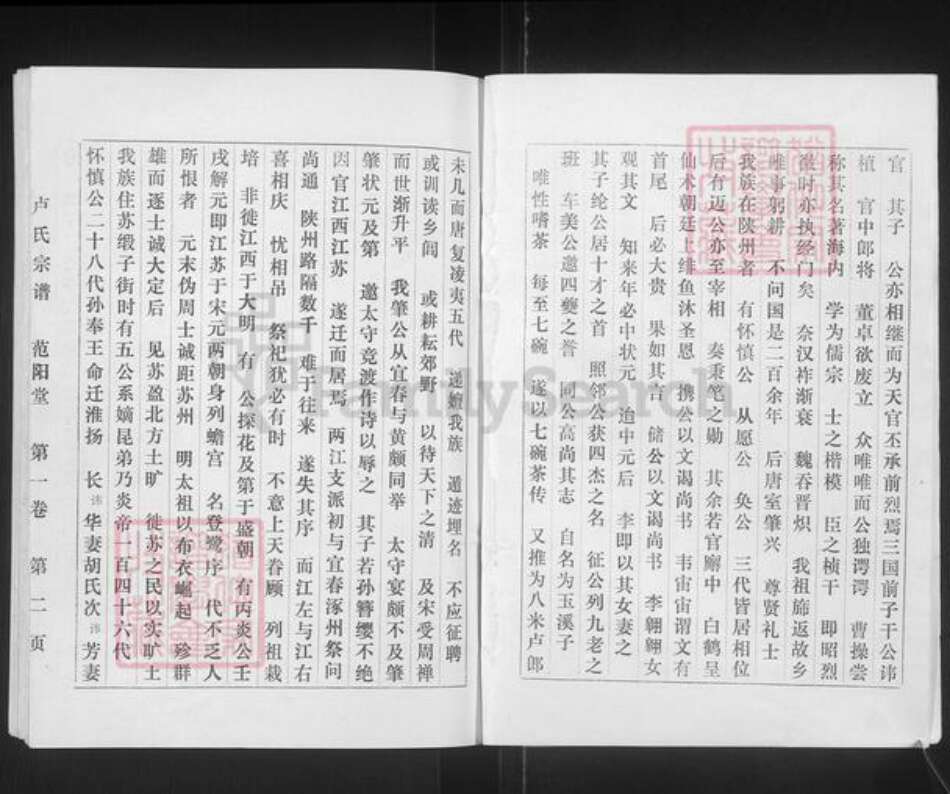 官　其子　公亦相继而为天官丕承前烈焉三国前子干公讳
植　官中郎将　董卓欲废立　众唯唯而公独谔谔　曹操尝
称其名著海内　学为儒宗　士之楷模　臣之桢干　即昭烈
微时亦执经门矣　奈汉祚渐衰　魏吞晋炽　我祖旆返故乡
唯事躬耕　不问国是二百余年　后唐室肇兴　尊贤礼士
我族在陕州者　有怀慎公　从愿公　奂公　三代皆居相位
后有迈公亦至宰相　奏秉笔之勋　其余若官廨中　白鹤呈
仙术朝廷上绯鱼沐圣恩　携公以文谒尚书　韦宙宙谓文有
首尾　后必大贵　果如其言　储公以文谒尚书　李翱翱女
观其文　知来年必中状元　迨中元后　李即以其女妻之
其子纶公居十才之首　照邻公获四杰之名　征公列九老之
班　车美公邀四夔之誉　同公高尚其志　自名为玉溪子
唯性嗜茶　每至七碗　遂以七碗茶传　又推为八米卢郎
未几而唐复凌夷五代　递嬗我族　遁迹埋名　不应征聘
或训读乡闾　或耕耘郊野　以待天下之清　及宋受周禅
而世渐升平　我肇公从宜春与黄颇同举　太守宴颇不及肇
肇状元及第　邀太守竞渡作诗以辱之　其子若孙簪缨不绝
因官江西江苏　遂迁而居焉　两江支派初与宜春涿州祭问
尚通　陕州路隔数千　难于往来　遂失其序　而江左与江右
喜相庆　忧相吊　祭祀犹必有时　不意上天眷顾　列祖栽
培　非徙江西于大明　有　公探花及第于盛朝　有丙炎公壬
戌解元即江苏于宋元两朝身列蟾宫　名登鹭序　代不乏人
所恨者　元末伪周士诚距苏州　明太祖以布衣崛起　殄群
雄而逐士诚大定后　见苏盈北方土旷　徙苏之民以实旷土
我族住苏缎子街时有五公系嫡昆弟乃炎帝一百四十六代
怀慎公二十八代孙奉王命迁淮扬　长讳华妻胡氏次讳芳妻
卢氏宗谱　范阳堂　第一卷　第二页
FamilySearch